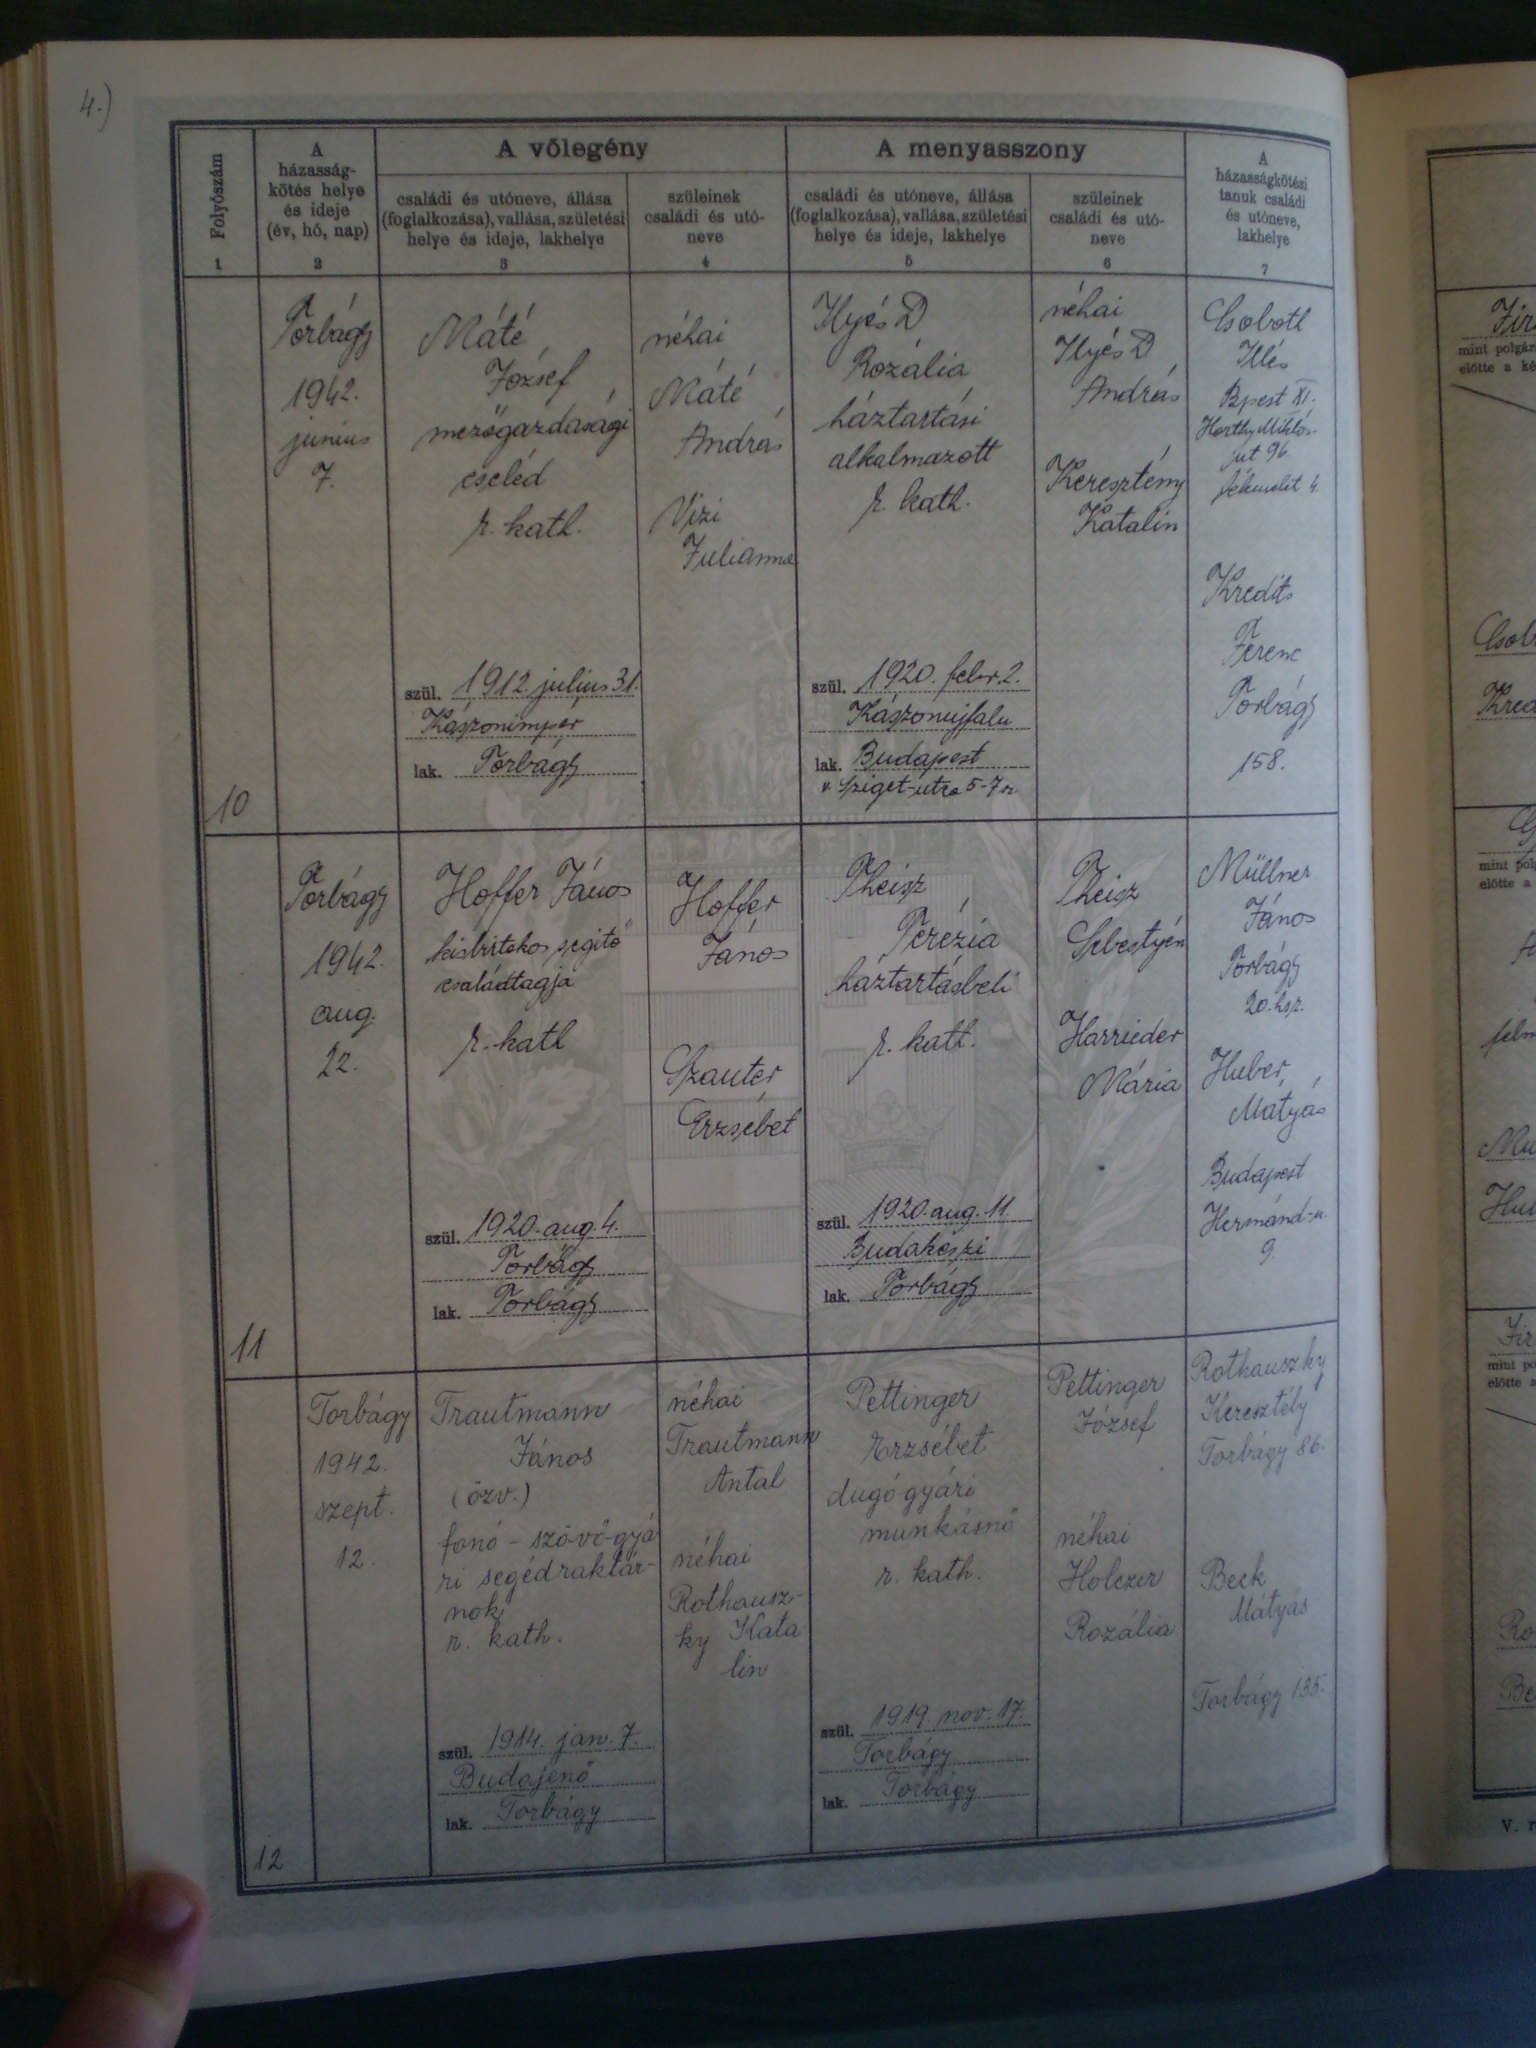 4.)
Folyószám
1
A
házasság-
kötés helye
és ideje
(év, hó, nap)
2
A vőlegény
családi és utóneve, állása
(foglalkozása), vallása, születési
helye és ideje, lakhelye
3
szüleinek
családi és utó-
neve
4
A menyasszony
családi és utóneve, állása
(foglalkozása), vallása, születési
helye és ideje, lakhelye
5
szüleinek
családi és utó-
neve
6
A
házasságkötési
tanuk családi
és utóneve,
lakhelye
7
10
Torbágy
1942.
junius
7.
Máté
József
mezőgazdasági
cseléd
r. kath.
szül. 1912. julius 31.
Kászonimper
lak. Torbágy
néhai
Máté
András
Vizi
Julianna
Ilyés D
Rozália
háztartási
alkalmazott
r. kath.
szül. 1920. febr. 2.
Kászonujfalu
lak. Budapest
Sziget-utca 5-7 sz.
néhai
Ilyés D
András
Keresztény
Katalin
Csoboth
Illés
Bpest XI.
Horthy Miklós-
út 96
félemelet 4.
Kredits
Ferenc
Torbágy
158.
11
Torbágy
1942.
aug.
22.
Hoffer János
kisbirtokos segitő
családtagja
r. kath
szül. 1920. aug. 4.
Torbágy
lak. Torbágy
Hoffer
János
Szauter
Erzsébet
Theisz
Terézia
háztartásbeli
r. kath.
szül. 1920. aug. 11.
Budakeszi
lak. Torbágy
Theisz
Sebestyén
Harrieder
Mária
Müllner
János
Torbágy
20. hsz.
Huber
Mátyás
Budapest
Hermánd-u.
9.
12
Torbágy
1942.
szept.
12.
Trautmann
János
(özv.)
fonó-szövőgyá
ri segédraktár-
nok
r. kath.
szül. 1914. jan. 7.
Budajenő
lak. Torbágy
néhai
Trautmann
Antal
néhai
Rothausz-
ky Kata
lin
Pettinger
Erzsébet
dugógyári
munkásnő
r. kath.
szül. 1919. nov. 17.
Torbágy
lak. Torbágy
Pettinger
József
néhai
Holczer
Rozália
Rothauszky
Keresztély
Torbágy 86.
Beck
Mátyás
Torbágy 135.
mint polgár
előtte a ké
mint polg
előtte a
mint po
előtte a
V. r